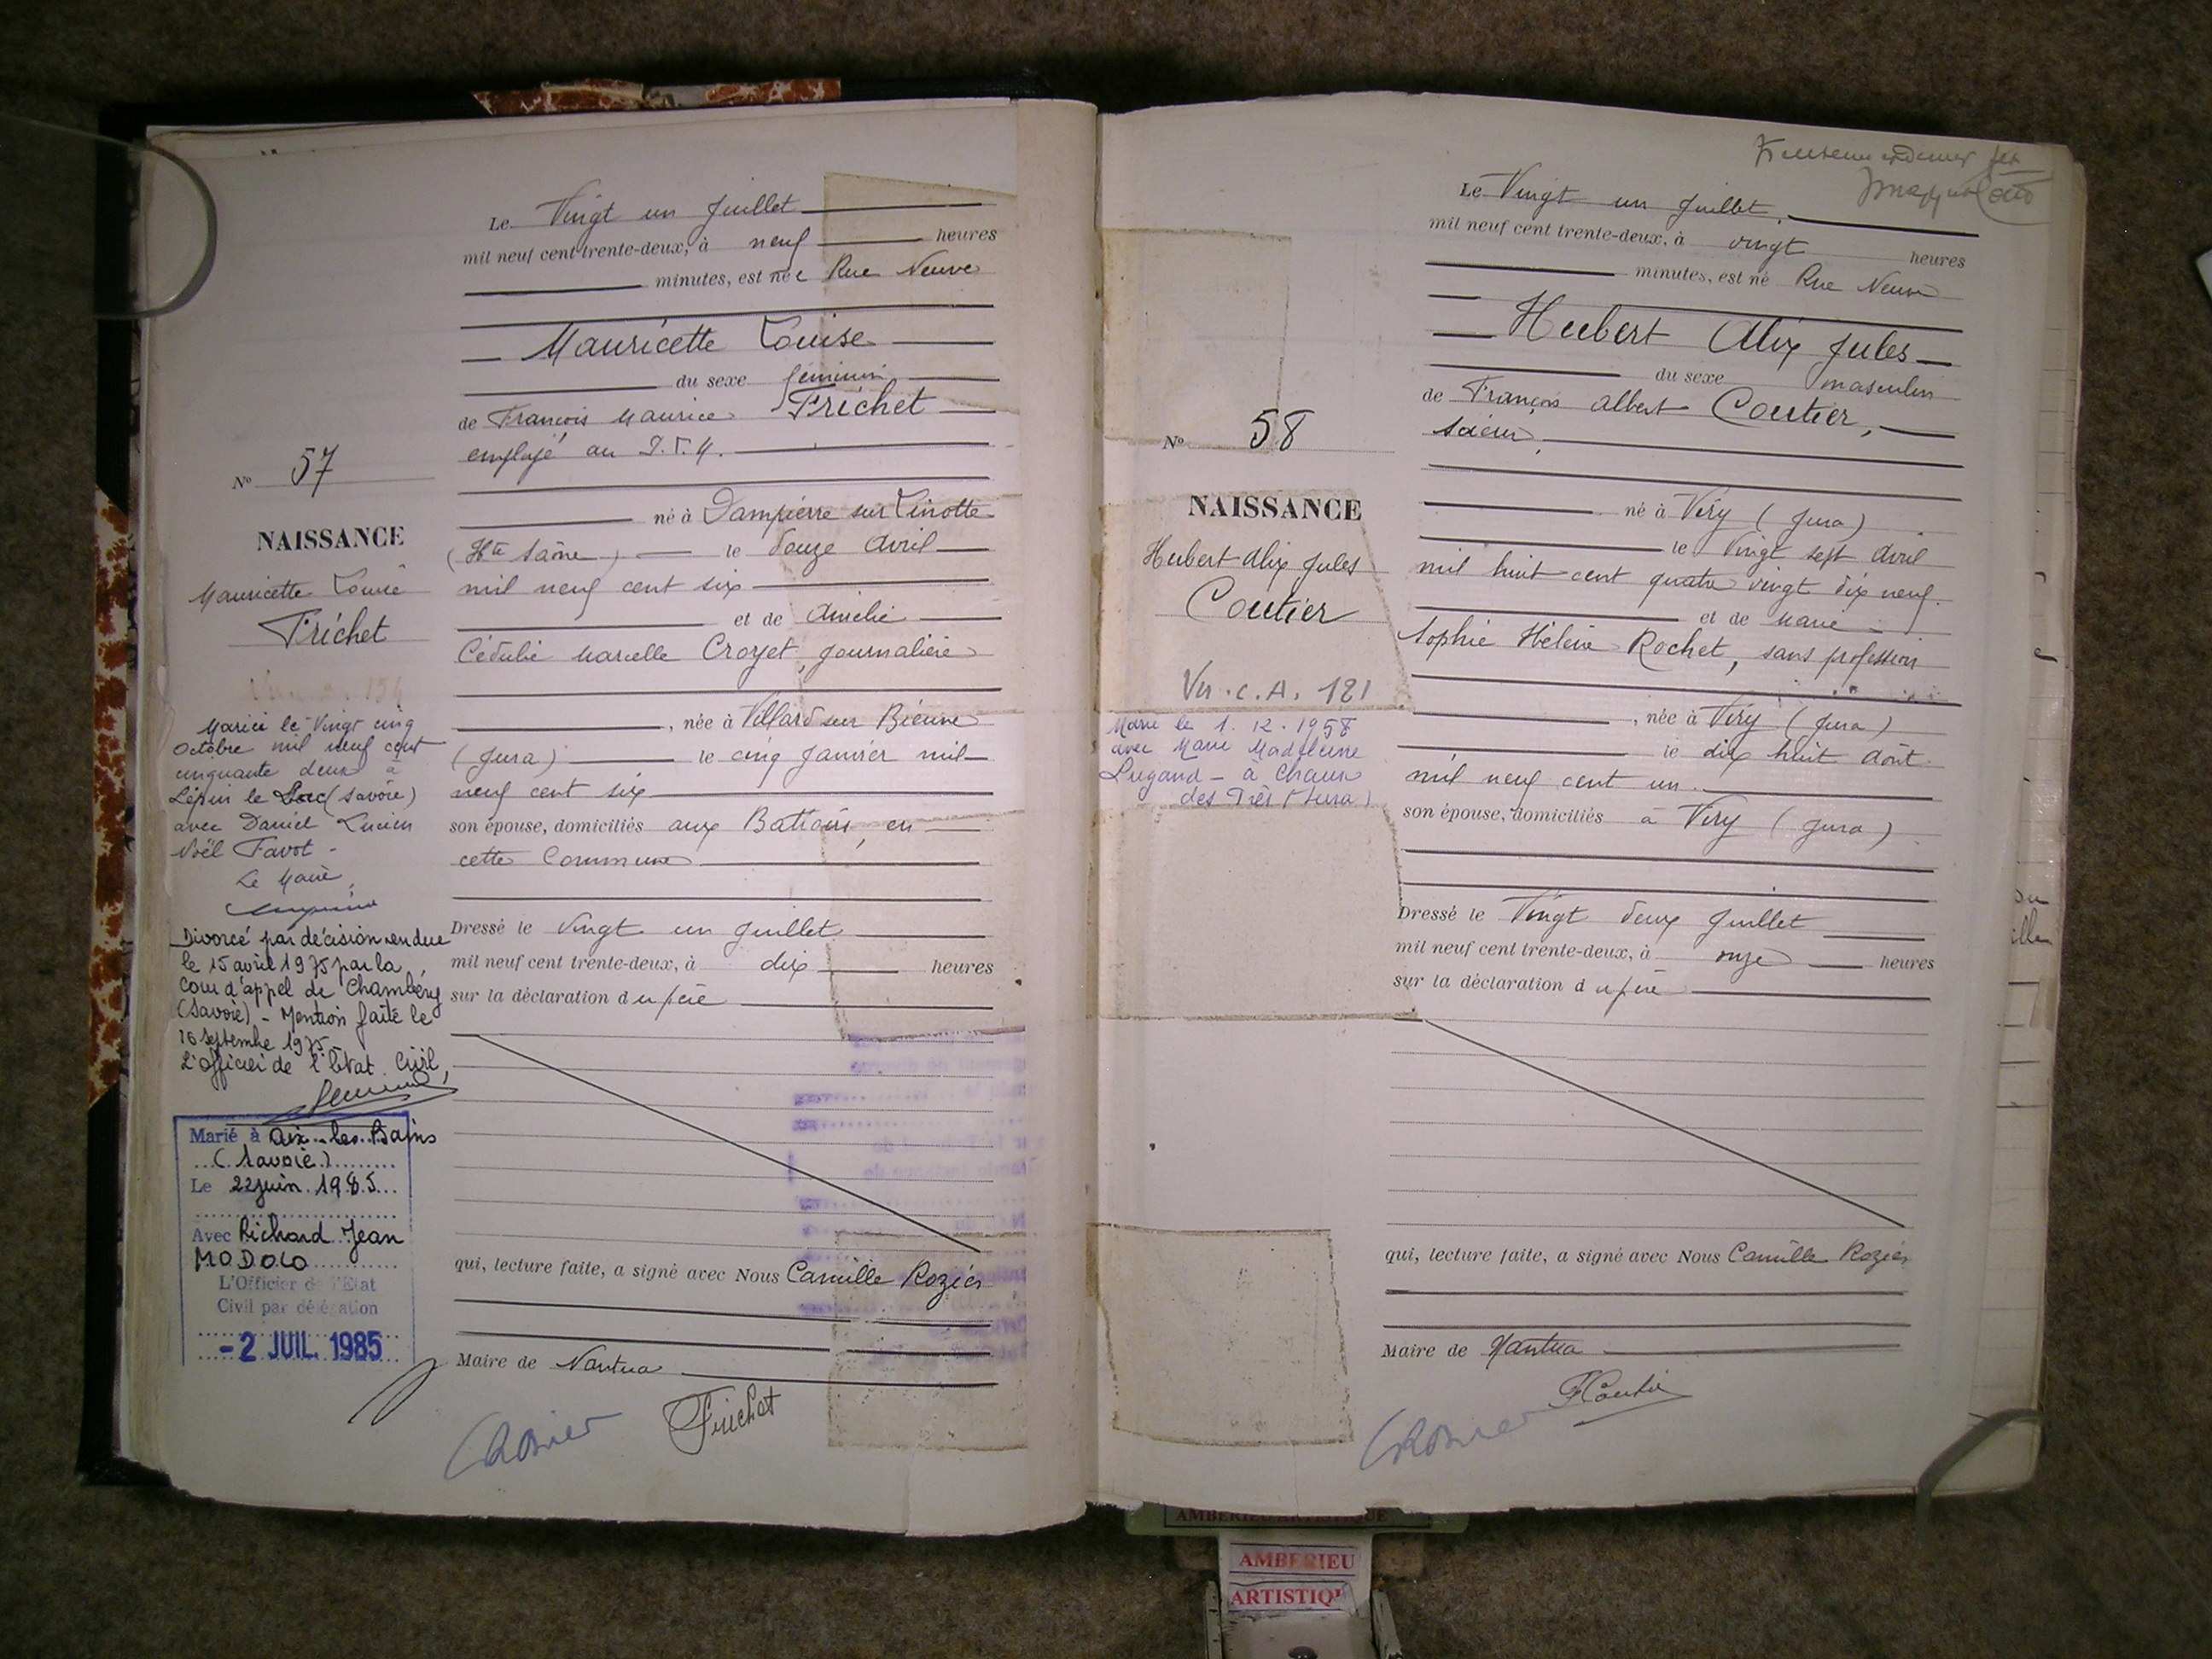 Le Vingt un Juillet
mil neuf cent trente-deux, à neuf heures
minutes, est née Rue Neuve
Mauricette Louise
du sexe féminin
de François Maurice Frichet
employé au P.T.T.
né à Dampierre sur Linotte
(Hte Saône) le douze Avril
mil neuf cent six
et de Amélie
Cédulie Marcelle Croyet, journalière
, née à Villard sur Bienne
(Jura) le cinq Janvier mil
neuf cent six
son épouse, domiciliés aux Battoirs, en
cette Commune
Dressé le Vingt un Juillet
mil neuf cent trente-deux, à dix heures
sur la déclaration du père
qui, lecture faite, a signé avec Nous Camille Rozier
Maire de Nantua
CRozier
Frichet
No 57
NAISSANCE
Mauricette Louise
Frichet
Mariée le Vingt cinq
Octobre mil neuf cent
cinquante deux à
Lépin le Lac (Savoie)
avec Daniel Lucien
Noël Favot -
Le Maire,
Divorcé par décision rendue
le 15 avril 1975 par la
Cour d'appel de Chambéry
(Savoie) - Mention faite le
16 septembre 1975
L'officier de l'Etat Civil,
Marié à Aix-les-Bains
(Savoie)
Le 22 juin 1985
Avec Richard Jean
MODOLO
L'Officier de l'Etat
Civil par délégation
-2 JUIL. 1985
Le Vingt un Juillet
mil neuf cent trente-deux, à vingt heures
minutes, est né Rue Neuve
Hubert Alix Jules
du sexe masculin
de François Albert Coutier,
scieur,
né à Viry (Jura)
le Vingt sept Avril
mil huit cent quatre vingt dix neuf
et de Marie
Sophie Hélène Rochet, sans profession
, née à Viry (Jura)
le dix huit Août
mil neuf cent un
son épouse, domiciliés à Viry (Jura)
Dressé le Vingt deux Juillet
mil neuf cent trente-deux, à onze heures
sur la déclaration du père
qui, lecture faite, a signé avec Nous Camille Rozier
Maire de Nantua
FCoutier
CRozier
No 58
NAISSANCE
Hubert Alix Jules
Coutier
Vu. C.A. 121
Marié le 1.12.1958
avec Marie Madeleine
Lugand - à Chaux
des Prés (Jura)
AMBERIEU ARTISTIQUE
AMBERIEU
ARTISTIQU